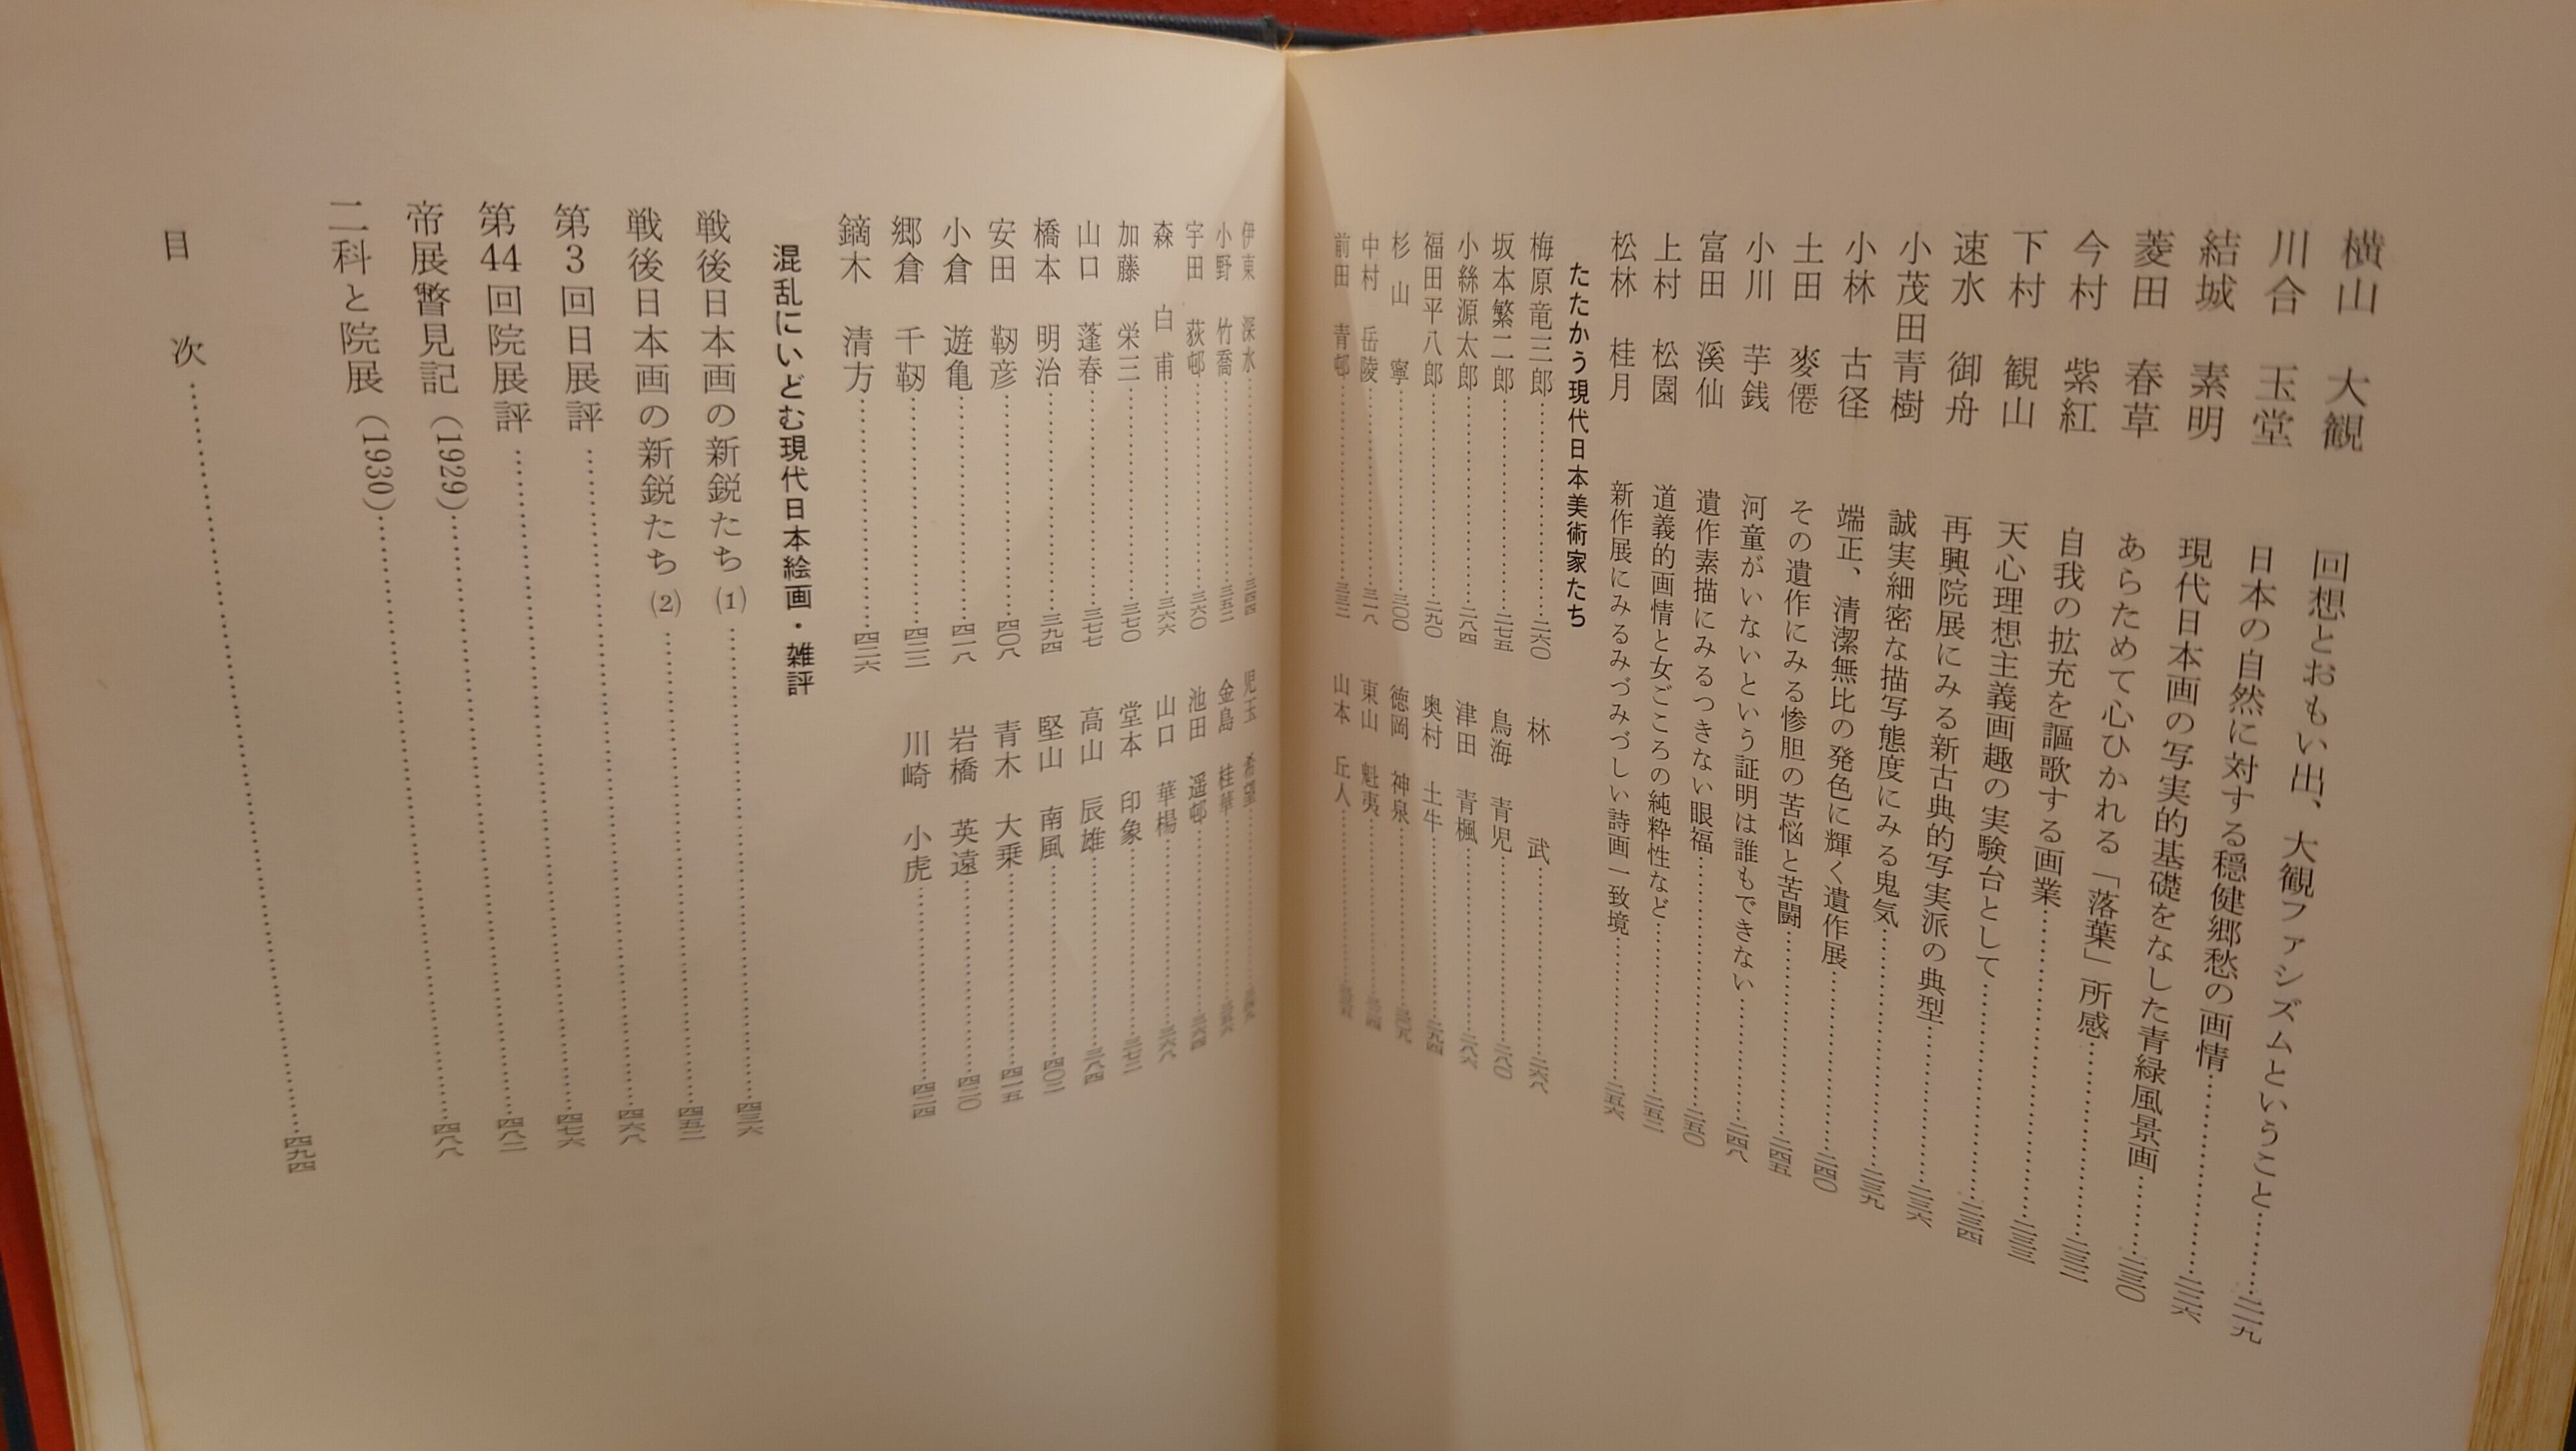 横山 大観 回想とおもい出、大観ファシズムということ…………二一九
川合 玉堂 日本の自然に対する穏健郷愁の画情…………二二六
結城 素明 現代日本画の写実的基礎をなした青緑風景画…………二三〇
菱田 春草 あらためて心ひかれる「落葉」所感…………二三二
今村 紫紅 自我の拡充を謳歌する画業…………二三三
下村 観山 天心理想主義画趣の実験台として…………二三四
速水 御舟 再興院展にみる新古典的写実派の典型…………二三六
小茂田 青樹 誠実細密な描写態度にみる鬼気…………二三九
小林 古径 端正、清潔無比の発色に輝く遺作展…………二四〇
土田 麥僊 その遺作にみる惨胆の苦悩と苦闘…………二四五
小川 芋銭 河童がいないという証明は誰もできない…………二四八
富田 溪仙 遺作素描にみるつきない眼福…………二五〇
上村 松園 道義的画情と女ごころの純粋性など…………二五二
松林 桂月 新作展にみるみづみづしい詩画一致境…………二五六
たたかう現代日本美術家たち
梅原竜三郎…………二六〇 林 武…………二六八
坂本繁二郎…………二七五 鳥海 青児…………二八〇
小絲源太郎…………二八四 津田 青楓…………二八六
福田平八郎…………二九〇 奥村 土牛…………二九四
杉山 寧…………三〇〇 徳岡 神泉…………三〇九
中村 岳陵…………三一八 東山 魁夷…………
前田 青邨…………三三二 山本 丘人…………
伊東 深水…………三四四 児玉 希望…………
小野 竹喬…………三五二 金島 桂華…………
宇田 荻邨…………三六〇 池田 遥邨…………三六四
森 白甫…………三六六 山口 華楊…………三六八
加藤 栄三…………三七〇 堂本 印象…………三七三
山口 蓬春…………三七七 高山 辰雄…………三八四
橋本 明治…………三九四 堅山 南風…………四〇三
安田 靱彦…………四〇八 青木 大乗…………四一五
小倉 遊亀…………四一八 岩橋 英遠…………四二〇
郷倉 千靱…………四二二 川崎 小虎…………四二四
鏑木 清方…………四二六
混乱にいどむ現代日本絵画・雑評
戦後日本画の新鋭たち(1)…………四三六
戦後日本画の新鋭たち(2)…………四五二
第3回日展評…………四六八
第44回院展評…………四七六
帝展瞥見記(1929)…………四八二
二科と院展(1930)…………四八八
目次…………四九四